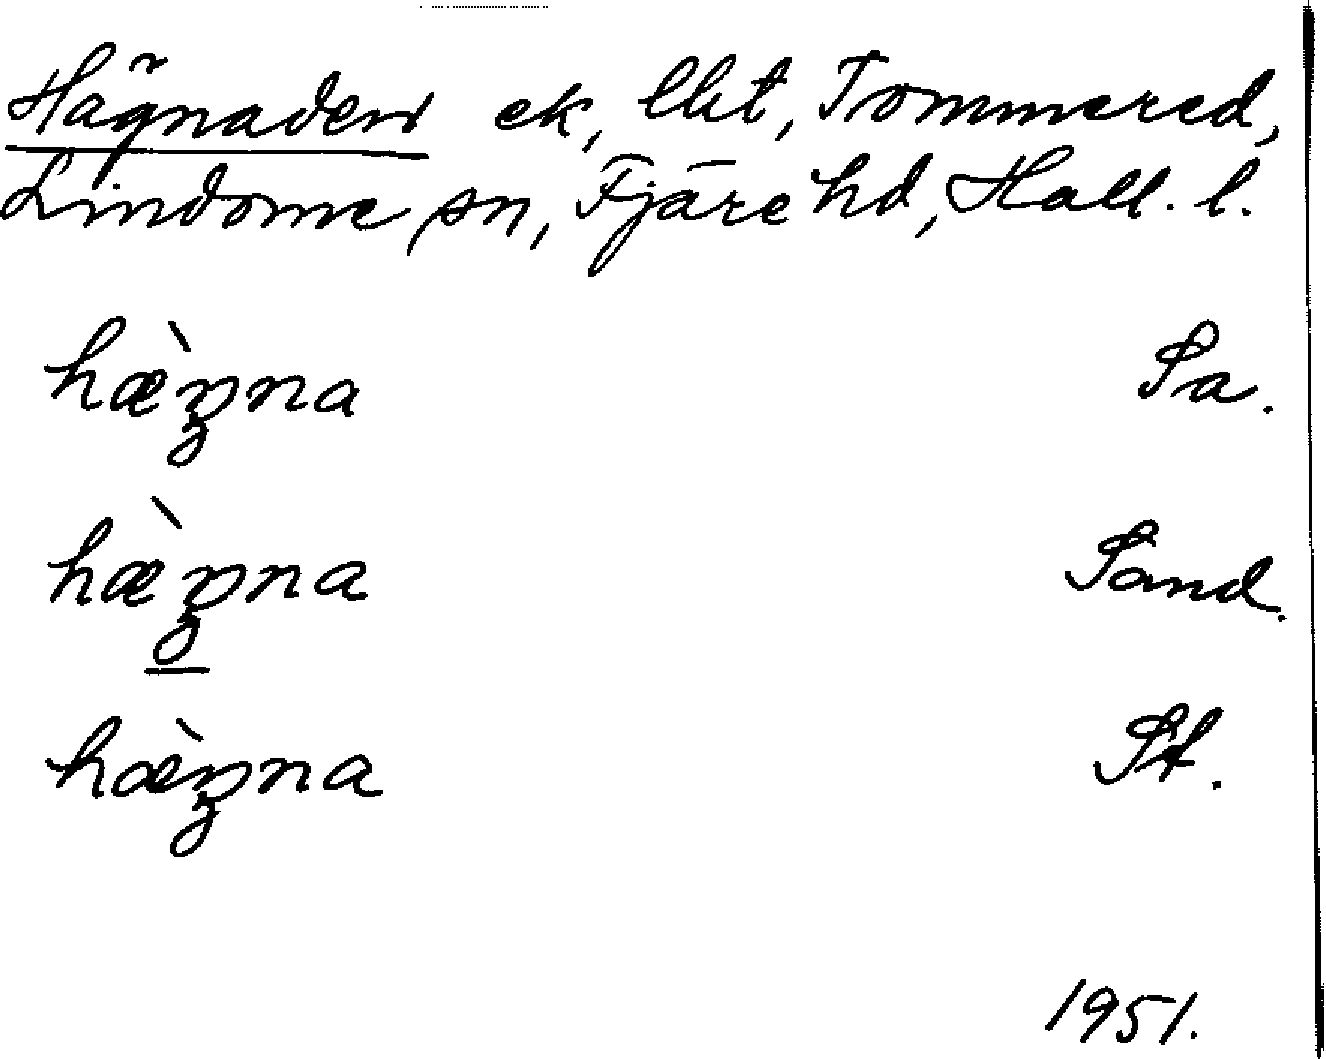 Hägnaden ek, llht, Tommered,
Lindome sn, Fjäre hd, Hall. l.
hæ̀ŋna Sa.
hæ̀ŋna Sand.
hæ̀ŋna St.
1951.